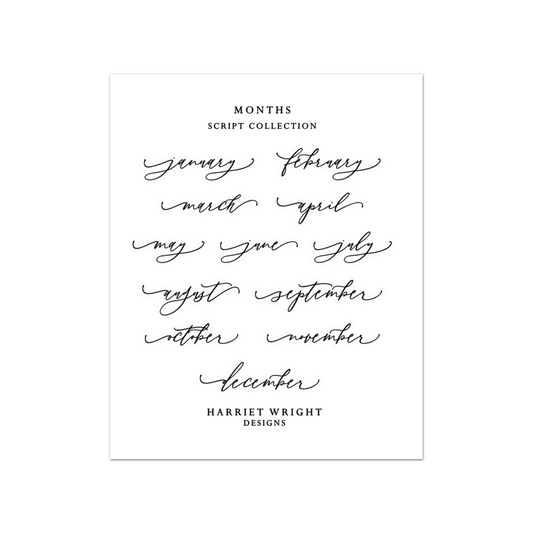 MONTHS
SCRIPT COLLECTION
january february
march april
may june july
august september
october november
december
HARRIET WRIGHT
DESIGNS